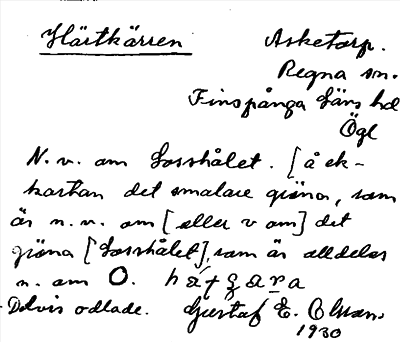 Härtkärren Asketorp.
Regna sn.
Finspånga läns hd
Ögl
N. v. om Losshålet. [å ek-
kartan det smalare gröna, som
är n. v. om [eller v om] det
gröna [Losshålet], som är alldeles
n. om O.
Delvis odlade. Gustaf E. Olsson.
1930